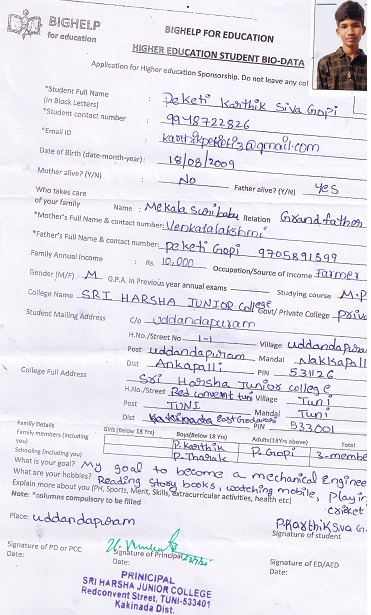 BIGHELP
for education
BIGHELP FOR EDUCATION
HIGHER EDUCATION STUDENT BIO-DATA
Application for Higher education Sponsorship. Do not leave any col
*Student Full Name : Peketi Karthik Siva Gopi
(in Block Letters)
*Student contact number : 9948722826
*Email ID : karthikpeketi3@gmail.com
Date of Birth (date-month-year): 18/08/2009
Mother alive? (Y/N) : No Father alive? (Y/N) Yes
Who takes care
of your family Name : Mekala Suribabu Relation Grand father
*Mother's Full Name & contact number: Venkatalakshmi
*Father's Full Name & contact number: Peketi Gopi 9705891599
Family Annual Income : Rs. 10,000 Occupation/Source of Income Farmer
Gender (M/F) M G.P.A. in Previous year annual exams Studying course M.P
College Name SRI HARSHA JUNIOR College Govt/ Private College priva
Student Mailing Address C/o uddandapuram
H.No./Street No 1-1 Village uddandapuram
Post uddandapuram Mandal Nakkapall
Dist Ankapalli PIN 531126
College Full Address : Sri Harsha Junior college
H.No./Street Red convent tuni Village Tuni
Post TUNI Mandal Tuni
Dist East Godavari PIN 533001
Family Details Girls (Below 18 Yrs) Boys(Below 18 Yrs) Adults(18Yrs above) Total
Family members (including you) P.Karthik P.Gopi 3-membe
Schooling (including you) P.Tharak
What is your goal? My goal to become a mechanical enginee
What are your hobbies? Reading story books, watching mobile, playin
Explain more about you (PH, Sports, Merit, Skills, extracurricular activities, health etc) cricket
Note: *columns compulsory to be filled
Place: uddandapuram P.Karthik Siva G
Signature of student
Signature of PD or PCC Signature of Principal Signature of ED/AED
Date: Date: Date:
PRINICIPAL
SRI HARSHA JUNIOR COLLEGE
Redconvent Street, TUNI-533401
Kakinada Dist.